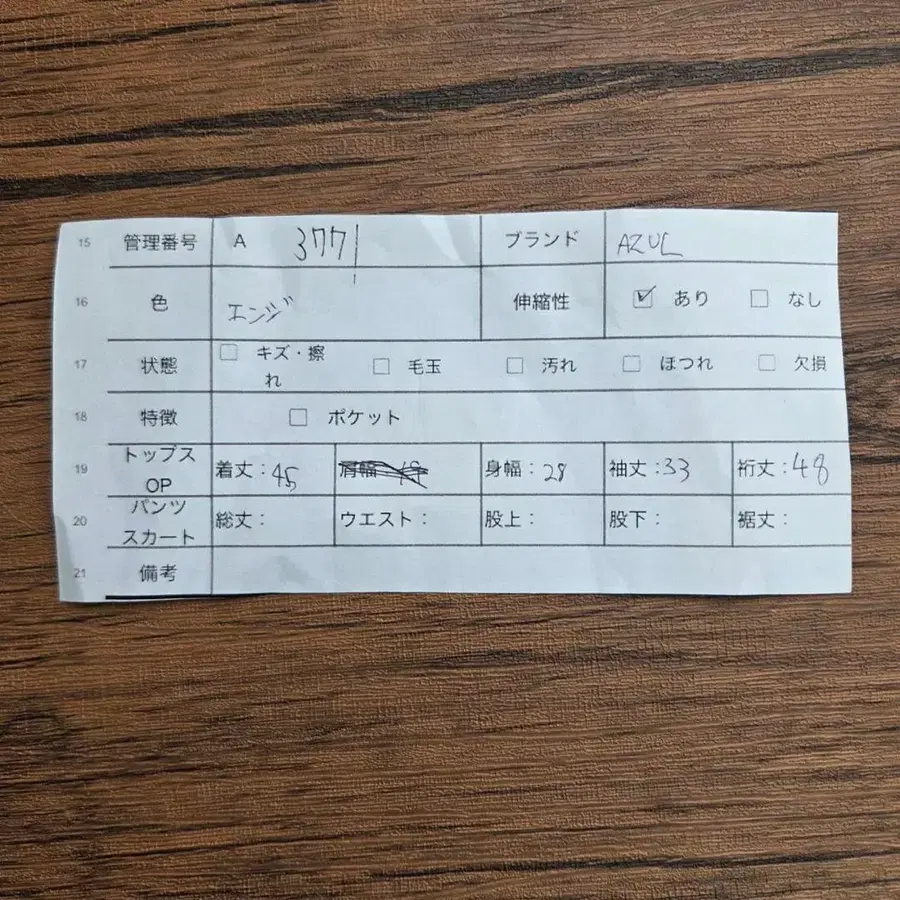 15 管理番号 A 3771 ブランド AZUL
16 色 エンジ 伸縮性 ☑ あり ☐ なし
17 状態 ☐ キズ・擦れ ☐ 毛玉 ☐ 汚れ ☐ ほつれ ☐ 欠損
18 特徴 ☐ ポケット
19 トップス OP 着丈:45 肩幅 身幅:28 袖丈:33 裄丈:48
20 パンツ スカート 総丈: ウエスト: 股上: 股下: 裾丈:
21 備考